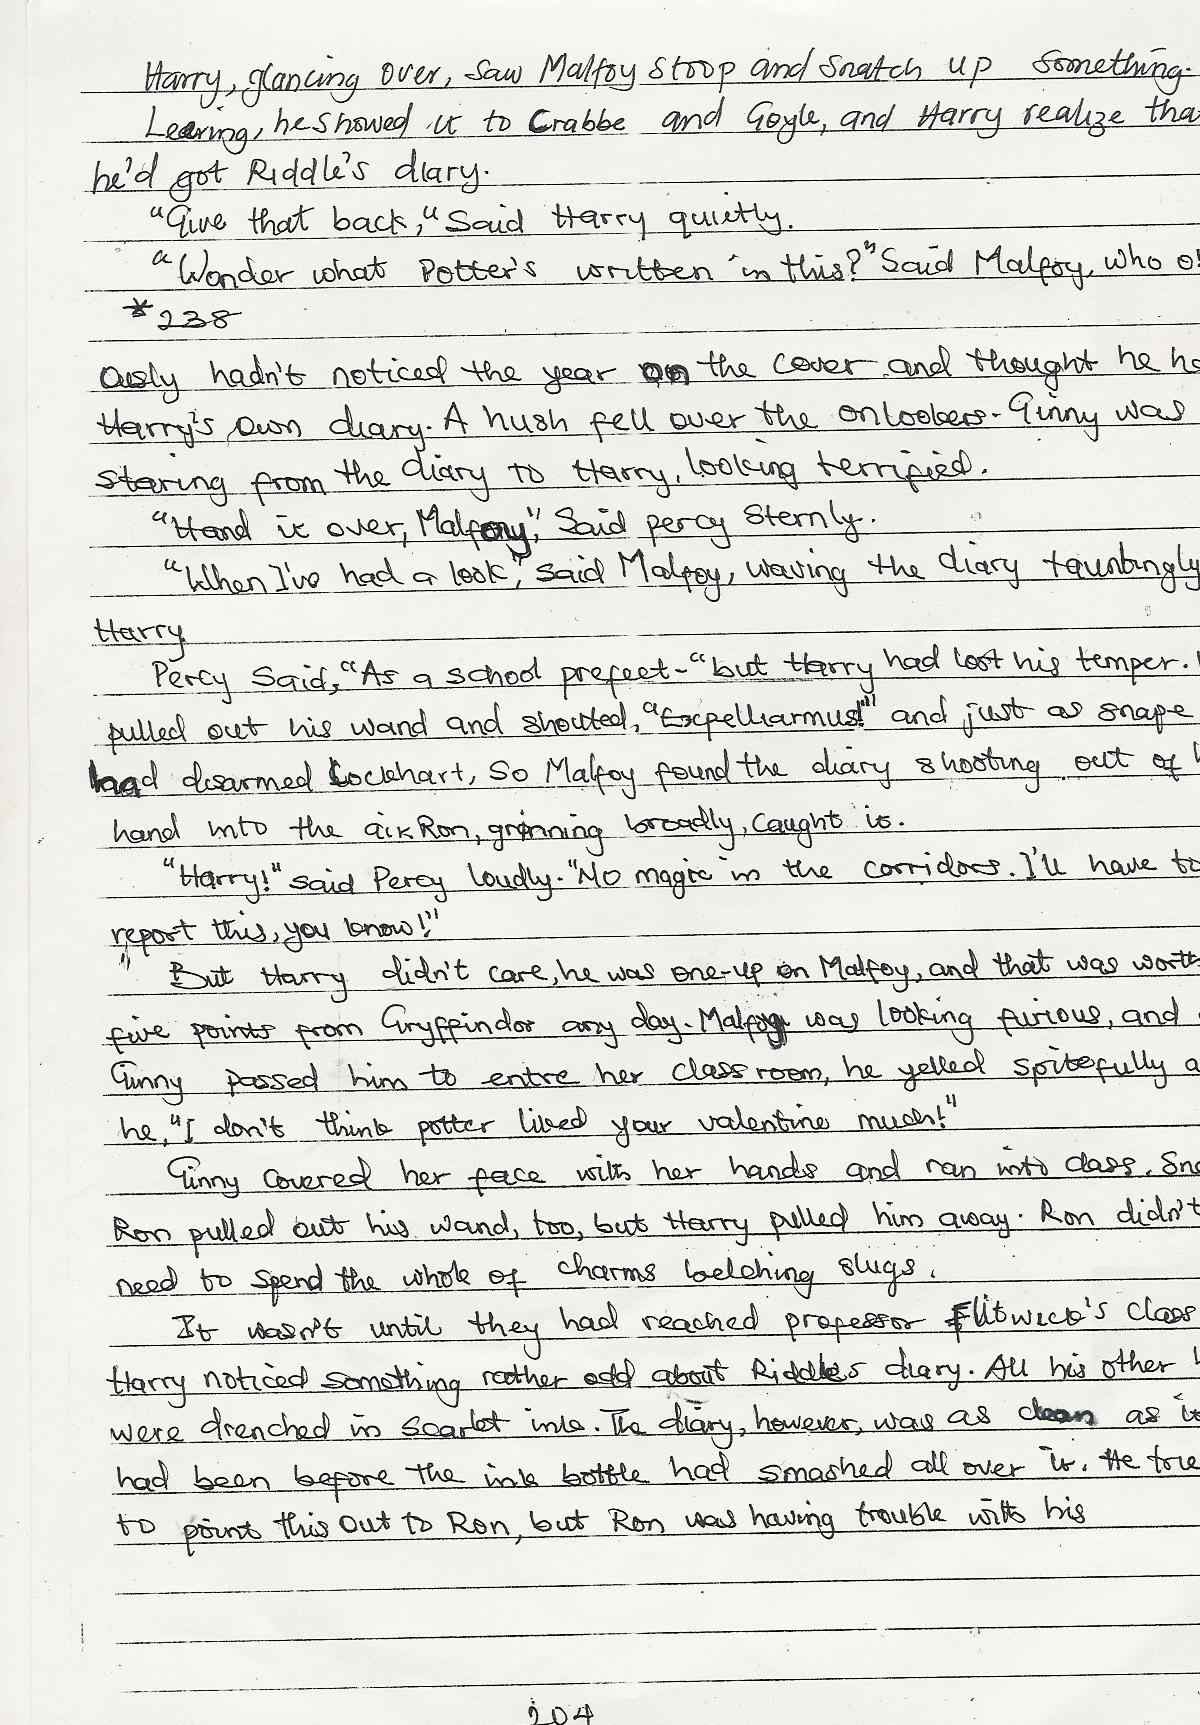 Harry, glancing over, saw Malfoy stoop and snatch up something.
Leering, he showed it to Crabbe and Goyle, and Harry realize tha
he'd got Riddle's diary.
"Give that back," Said Harry quietly.
"Wonder what Potter's written in this?" Said Malfoy, who o
*238
ously hadn't noticed the year on the cover and thought he ha
Harry's own diary. A hush fell over the onlookers - Ginny was
staring from the diary to Harry, looking terrified.
"Hand it over, Malfony", Said percy sternly.
"When I've had a look", said Malfoy, waving the diary tauntingly
Harry.
Percy Said, "As a school prefect-" but Harry had lost his temper.
pulled out his wand and shouted, "Expelliarmus!" and just as snape
had disarmed Lockhart, so Malfoy found the diary shooting out of h
hand into the air Ron, grinning broadly, caught it.
"Harry!" said Percy loudly. "No magic in the corridors. I'll have to
report this, you know!"
" But Harry didn't care, he was one-up on Malfoy, and that was worth
five points from Gryffindor any day. Malfoy was looking furious, and
Ginny passed him to entre her classroom, he yelled spitefully a
he, "I don't think potter liked your valentine much!"
Ginny covered her face with her hands and ran into class. Sna
Ron pulled out his wand, too, but Harry pulled him away. Ron didn't
need to spend the whole of charms belching slugs.
It wasn't until they had reached professor Flitwick's class
Harry noticed something rather odd about Riddle's diary. All his other
were drenched in scarlet ink. The diary, however, was as clean as it
had been before the ink bottle had smashed all over it. He trie
to point this out to Ron, but Ron was having trouble with his
204